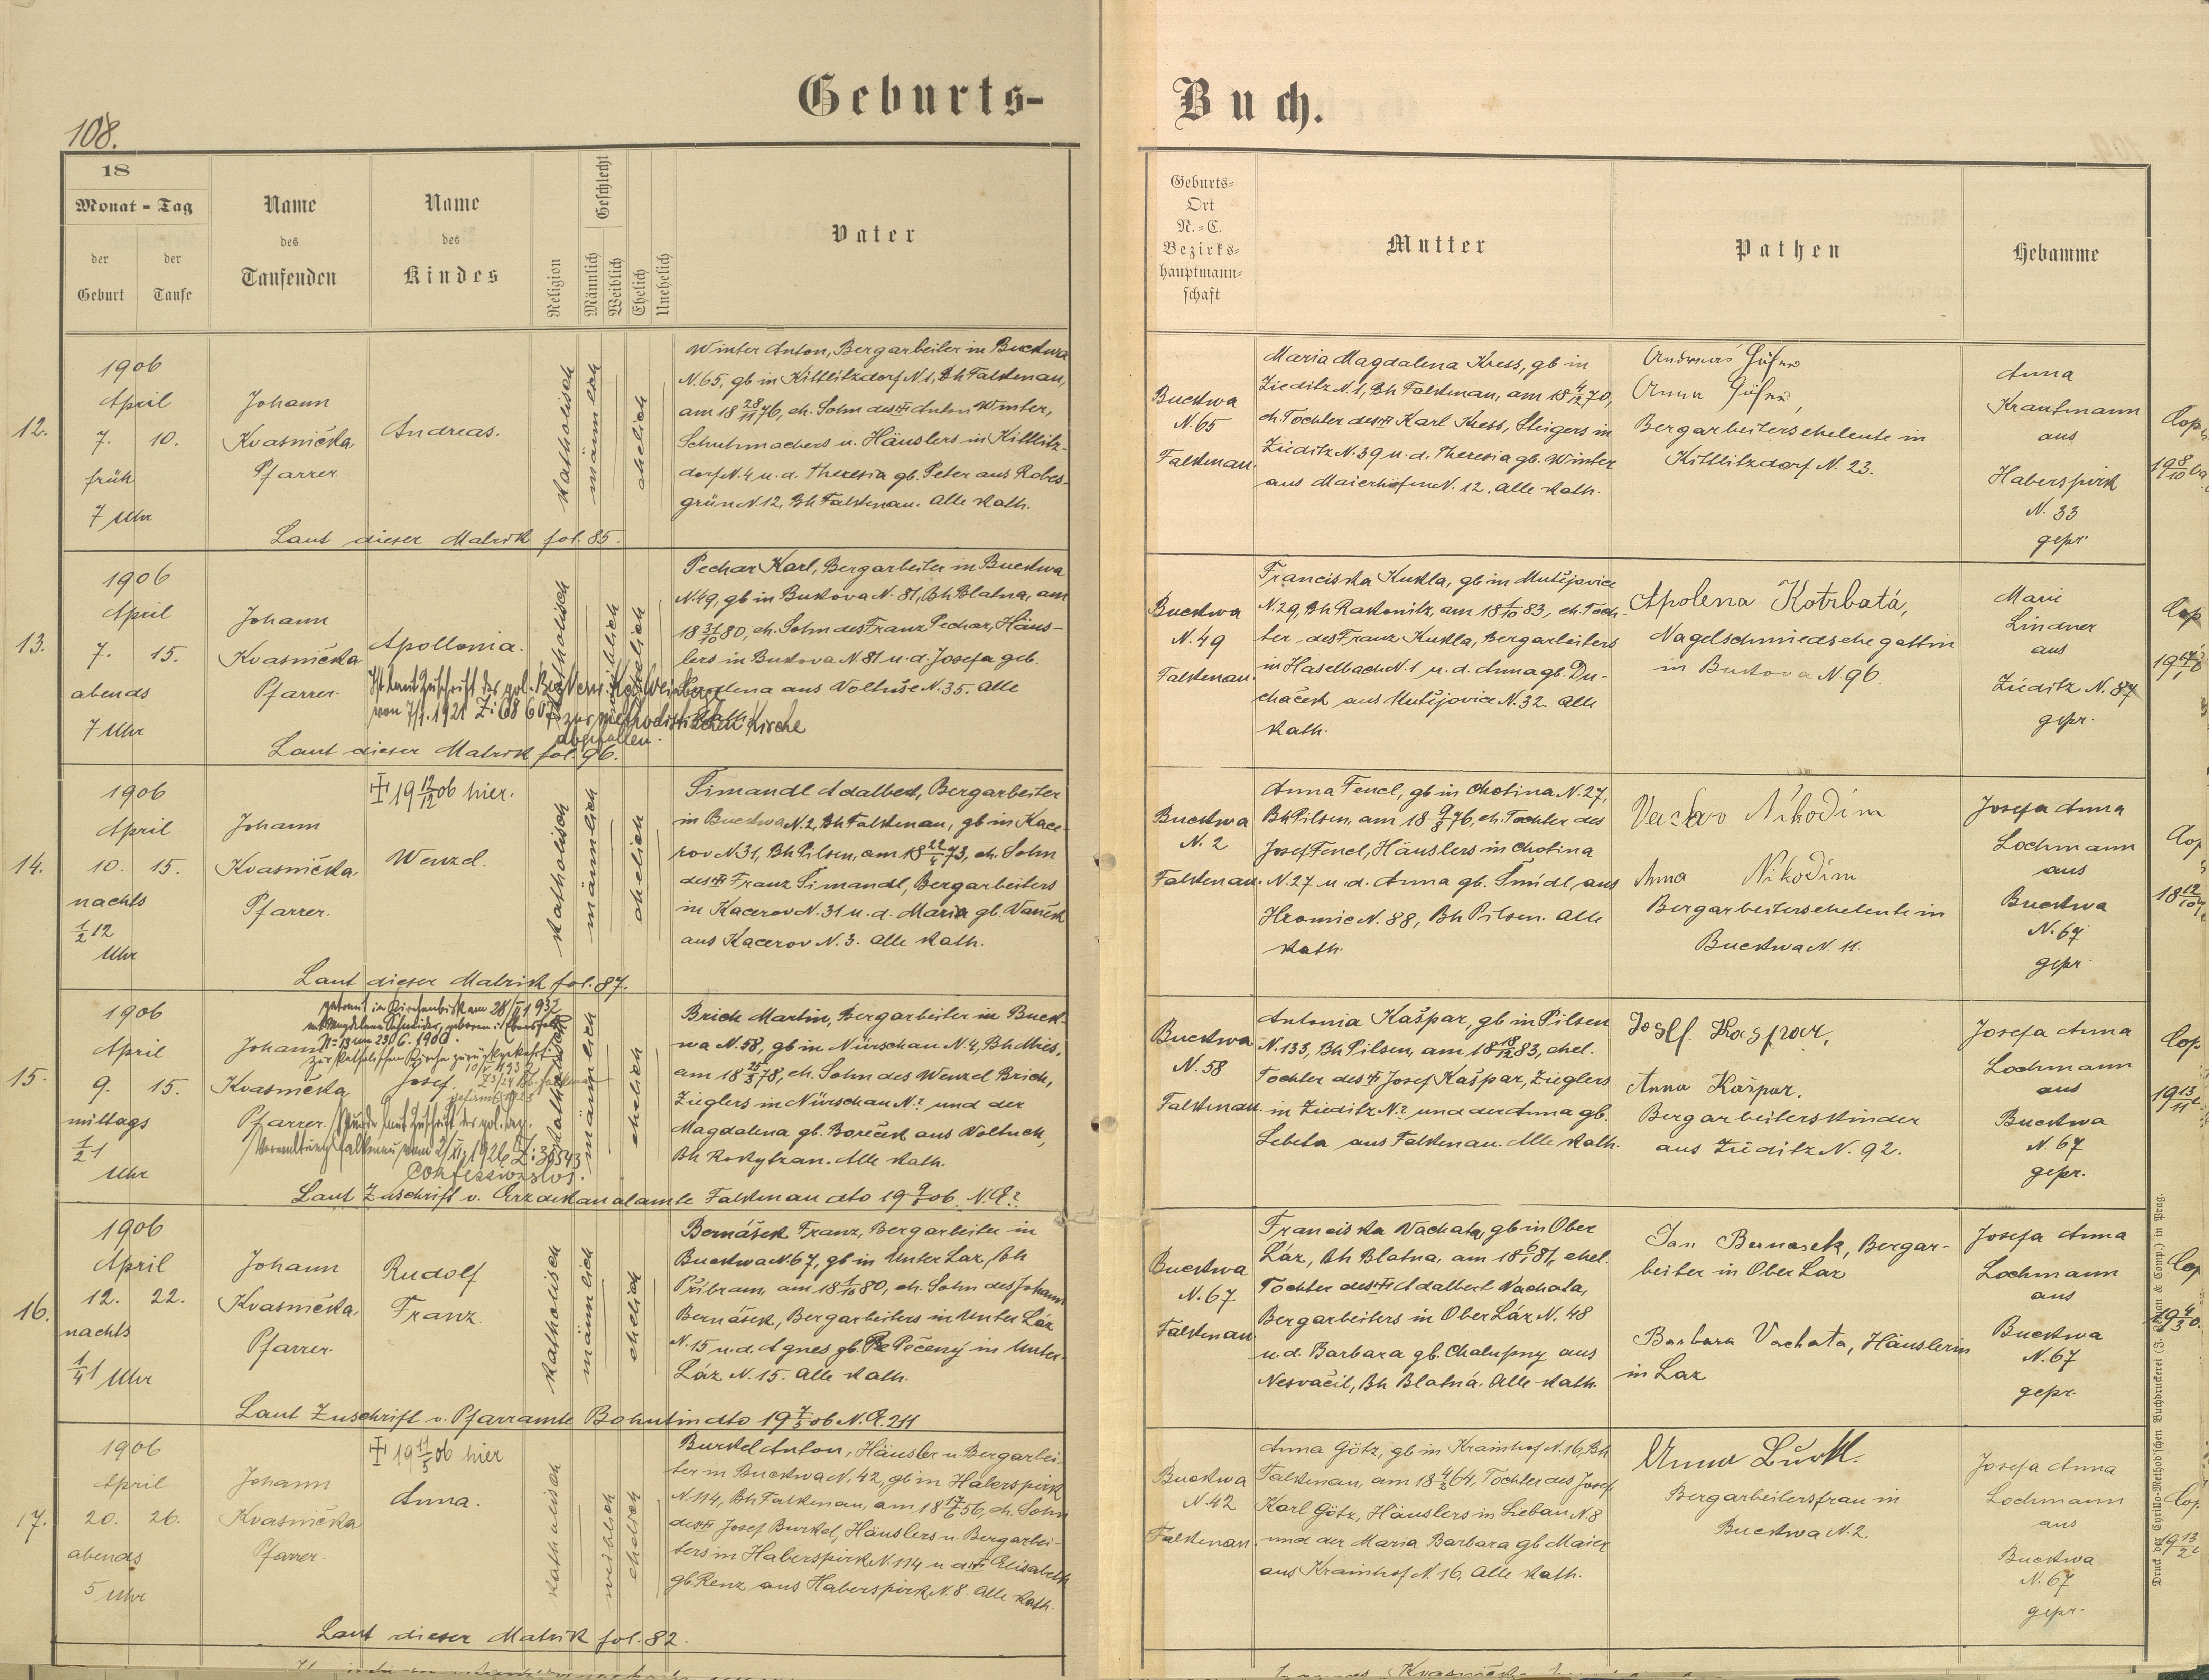 Geburts-
Buch.
108.
18
Monat - Tag
der
Geburt
der
Taufe
Name
des
Taufenden
Name
des
Kindes
Religion
Geschlecht
Männlich
Weiblich
Ehelich
Unehelich
Vater
Geburts-
Ort
N.-C.
Bezirks-
hauptmann-
schaft
Mutter
Pathen
Hebamme
12.
1906
April
7. 10.
früh
7 Uhr
Johann
Kvasnička
Pfarrer
Andreas.
katholisch
männlich
ehelich
Winter Anton, Bergarbeiter in Buckwa
N. 65, gb in Kittlitzdorf N 1, Bh Falkenau,
am 18 28/11 76, eh. Sohn des ✠ Anton Winter,
Schuhmachers u. Häuslers in Kittlitz-
dorf N. 4 u. d. Theresia gb. Peter aus Robes-
grün N. 12, Bh Falkenau. Alle kath.
Laut dieser Matrik fol. 85.
Buckwa
N. 65
Falkenau.
Maria Magdalena Kress, gb in
Zieditz N. 1, Bh Falkenau, am 18 4/12 70,
eh Tochter des ✠ Karl Kress, Steigers in
Zieditz N. 39 u. d. Theresia gb. Winter
aus Maierhöfen N. 12. Alle kath.
Bergarbeiterseheleute in
Kittlitzdorf N. 23.
Anna
Krautmann
aus
Haberspirk
N. 33
gepr.
Cop
13.
1906
April
7. 15.
abends
7 Uhr
Johann
Kvasnička
Pfarrer
Apollonia.
Ist laut Zuschrift der pol. Bez. Verw. Kgl. Weinberge
von 7/1. 1921 Z: 68 607 zur methodistischen Kirche
abgefallen.
katholisch
weiblich
ehelich
Pechar Karl, Bergarbeiter in Buckwa
N. 49, gb in Bukova N. 81, Bh Blatna, am
18 31/10 80, eh. Sohn des Franz Pechar, Häus-
lers in Bukova N 81 u. d. Josefa geb.
aus Voltuše N. 35. Alle
Laut dieser Matrik fol. 96.
Buckwa
N. 49
Falkenau.
Franciska Kukla, gb in Mutějovice
N. 29, Bh Rakonitz, am 18 1/10 83, eh. Toch-
ter des Franz Kukla, Bergarbeiters
in Haselbach N. 1 u. d. Anna gb. Du-
chaček aus Mutějovice N. 32. Alle
kath.
Apolena Kotrbatá,
Nagelschmiedsehegattin
in Bukova N 96
Marie
Lindner
aus
Zieditz N. 87
gepr.
Cop
14.
1906
April
10. 15.
nachts
1/2 12
Uhr
Johann
Kvasnička
Pfarrer.
✠ 19 12/12 06 hier.
Wenzel.
katholisch
männlich
ehelich
Šimandl Adalbert, Bergarbeiter
in Buckwa N. 2, Bh Falkenau, gb in Kace-
rov N 31, Bh Pilsen, am 18 22/4 73, eh. Sohn
des ✠ Franz Šimandl, Bergarbeiters
in Kacerov N. 31 u. d. Maria gb. Vaněk
aus Kacerov N. 3. Alle kath.
Laut dieser Matrik fol. 87.
Buckwa
N. 2
Falkenau.
Anna Fencl, gb in Chotina N. 27,
Bh Pilsen, am 18 9/8 76, eh. Tochter des
Josef Fencl, Häuslers in Chotina
N. 27 u. d. Anna gb. Šmídl aus
Hromic N. 88, Bh Pilsen. Alle
kath.
Nikodim
Anna Nikodim
Bergarbeiterseheleute in
Buckwa N. 11.
Josefa Anna
Lochmann
aus
Buckwa
N. 67
gepr.
Cop
15.
1906
April
9. 15.
mittags
1/2 1
Uhr
Johann
Kvasnička
Pfarrer.
getraut in Kirchenbirk am 28/
mit Magdalena Schneider, geboren i.
zur katholischen Kirche zurückgekehrt
Josef.
Wurde laut Zuschrift der pol. Bez.
Verwaltung Falkenau vom 2/XI. 1926 Z: 39543
Confessionslos.
katholisch
männlich
ehelich
Brich Martin, Bergarbeiter in Buck-
wa N. 58, gb in Nürschau N. 4, Bh Mies,
am 18 25/3 78, eh. Sohn des Wenzel Brich,
Zieglers in Nürschau N.? und der
Magdalena gb. Boreček aus Voltuch,
Bh Rokytzan. Alle kath.
Laut Zuschrift v. Erzdekanalamte Falkenau dto 19 9/5 06. N. E.?
Buckwa
N. 58
Falkenau.
Antonia Kašpar, gb in Pilsen
N. 133, Bh Pilsen, am 18 18/12 83, ehel.
Tochter des ✠ Josef Kašpar, Zieglers
in Zieditz N.? und der Anna gb.
Lebeta aus Falkenau. Alle kath.
Josef Kaspar,
Anna Kašpar.
Bergarbeiterskinder
aus Zieditz N. 92.
Josefa Anna
Lochmann
aus
Buckwa
N. 67
gepr.
Cop
16.
1906
April
12. 22.
nachts
1/4 1 Uhr
Johann
Kvasnička
Pfarrer
Rudolf
Franz
katholisch
männlich
ehelich
Bernášek Franz, Bergarbeiter in
Buckwa N. 67, gb in Unter Laz, Bh
Přibram, am 18 1/10 80, eh. Sohn des Johann
Bernášek, Bergarbeiters in Unter Láz
N. 15 u. d. Agnes gb. Pečený in Unter-
Láz N. 15. Alle kath.
Laut Zuschrift v. Pfarramte Bohutin dto 19 7/5 06 N. E. 211
Buckwa
N. 67
Falkenau
Franciska Vachata, gb in Ober
Láz, Bh Blatna, am 18 6/1 81, ehel.
Tochter des ✠ Adalbert Vachata,
Bergarbeiters in Ober Láz N. 48
u. d. Barbara gb. Chalupny aus
Nesvačil, Bh Blatná. Alle kath.
Jan Bernasek, Bergar-
beiter in Ober Laz
Barbara Vachata, Häuslerin
in Laz
Josefa Anna
Lochmann
aus
Buckwa
N. 67
gepr.
Cop
17.
1906
April
20. 26.
abends
5 Uhr
Johann
Kvasnička
Pfarrer.
✠ 19 11/5 06 hier
Anna.
katholisch
weiblich
ehelich
Burkel Anton, Häusler u. Bergarbei-
ter in Buckwa N. 42, gb in Haberspirk
N. 114, Bh Falkenau, am 18 17/6 56, eh. Sohn
des ✠ Josef Burkel, Häuslers u. Bergarbei-
ters in Haberspirk N 114 u d ✠ Elisabeth
gb. Renz aus Haberspirk N. 8. Alle kath.
Laut dieser Matrik fol. 82.
Buckwa
N. 42
Falkenau
Anna Götz, gb in Krainhof N. 16, Bh
Falkenau, am 18 4/3 64, Tochter des Josef
Karl Götz, Häuslers in Lieban N. 8
und der Maria Barbara gb Maier
aus Krainhof N. 16. Alle kath.
Bergarbeitersfrau in
Buckwa N. 2.
Josefa Anna
Lochmann
aus
Buckwa
N. 67
gepr.
Cop
Druck der Cyrillo-Method'schen Buchdruckerei (J. Zeman & Comp.) in Prag.